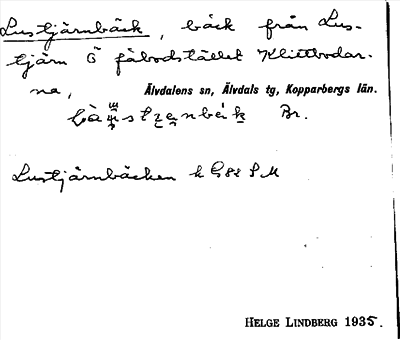 Lustjärnbäck, bäck från Lus-
tjärn Ö fäbodstället Klittbodar-
na, Älvdalens sn, Älvdals tg, Kopparbergs län.
Br.
Lustjärnbäcken k G88 S M
HELGE LINDBERG 1935.